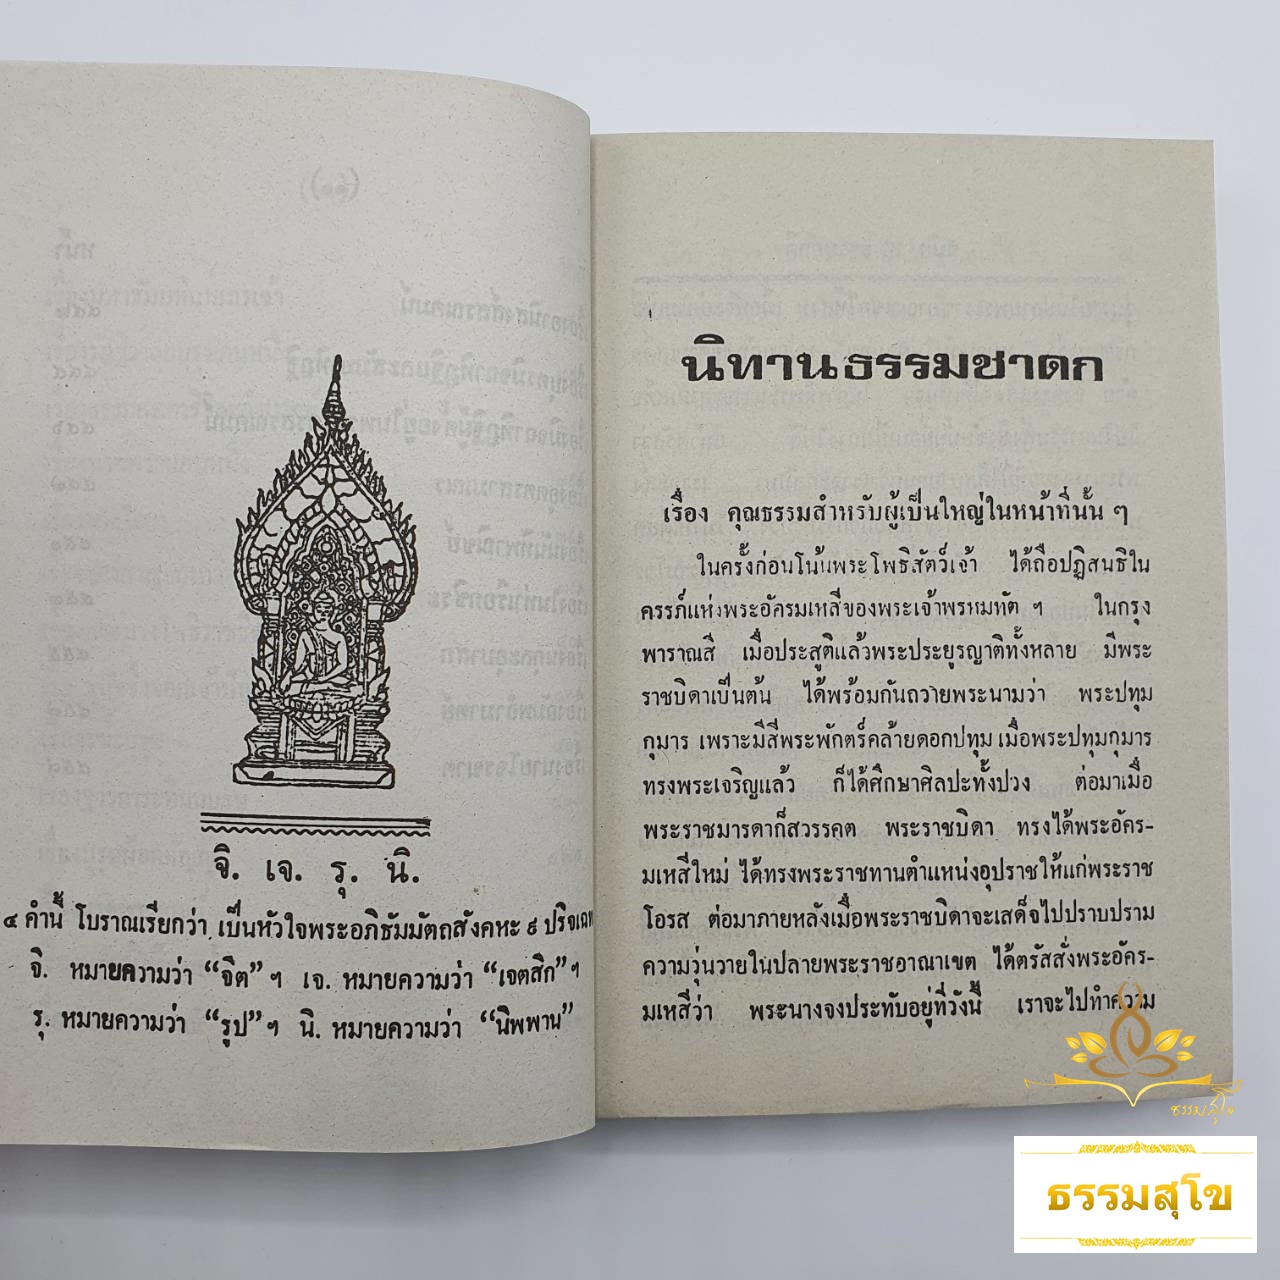 จิ. เจ. รุ. นิ.
๔ คำนี้ โบราณเรียกว่า เป็นหัวใจพระอภิธัมมัตถสังคหะ ๙ ปริจเฉท
จิ. หมายความว่า “จิต” ฯ เจ. หมายความว่า “เจตสิก” ฯ
รุ. หมายความว่า “รูป” ฯ นิ. หมายความว่า “นิพพาน”
นิทานธรรมชาดก
เรื่อง คุณธรรมสำหรับผู้เป็นใหญ่ในหน้าที่นั้น ๆ
ในครั้งก่อนโน้นพระโพธิสัตว์เจ้า ได้ถือปฏิสนธิใน
ครรภ์แห่งพระอัครมเหสีของพระเจ้าพรหมทัต ฯ ในกรุง
พาราณสี เมื่อประสูติแล้วพระประยูรญาติทั้งหลาย มีพระ
ราชบิดาเป็นต้น ได้พร้อมกันถวายพระนามว่า พระปทุม
กุมาร เพราะมีสีพระพักตร์คล้ายดอกปทุม เมื่อพระปทุมกุมาร
ทรงพระเจริญแล้ว ก็ได้ศึกษาศิลปะทั้งปวง ต่อมาเมื่อ
พระราชมารดาก็สวรรคต พระราชบิดา ทรงได้พระอัคร-
มเหสีใหม่ ได้ทรงพระราชทานตำแหน่งอุปราชให้แก่พระราช
โอรส ต่อมาภายหลังเมื่อพระราชบิดาจะเสด็จไปปราบปราม
ความวุ่นวายในปลายพระราชอาณาเขต ได้ตรัสสั่งพระอัคร-
มเหสีว่า พระนางจงประทับอยู่ที่วังนี้ เราจะไปทำความ
ธรรมสุโข
ธรรมสุโข